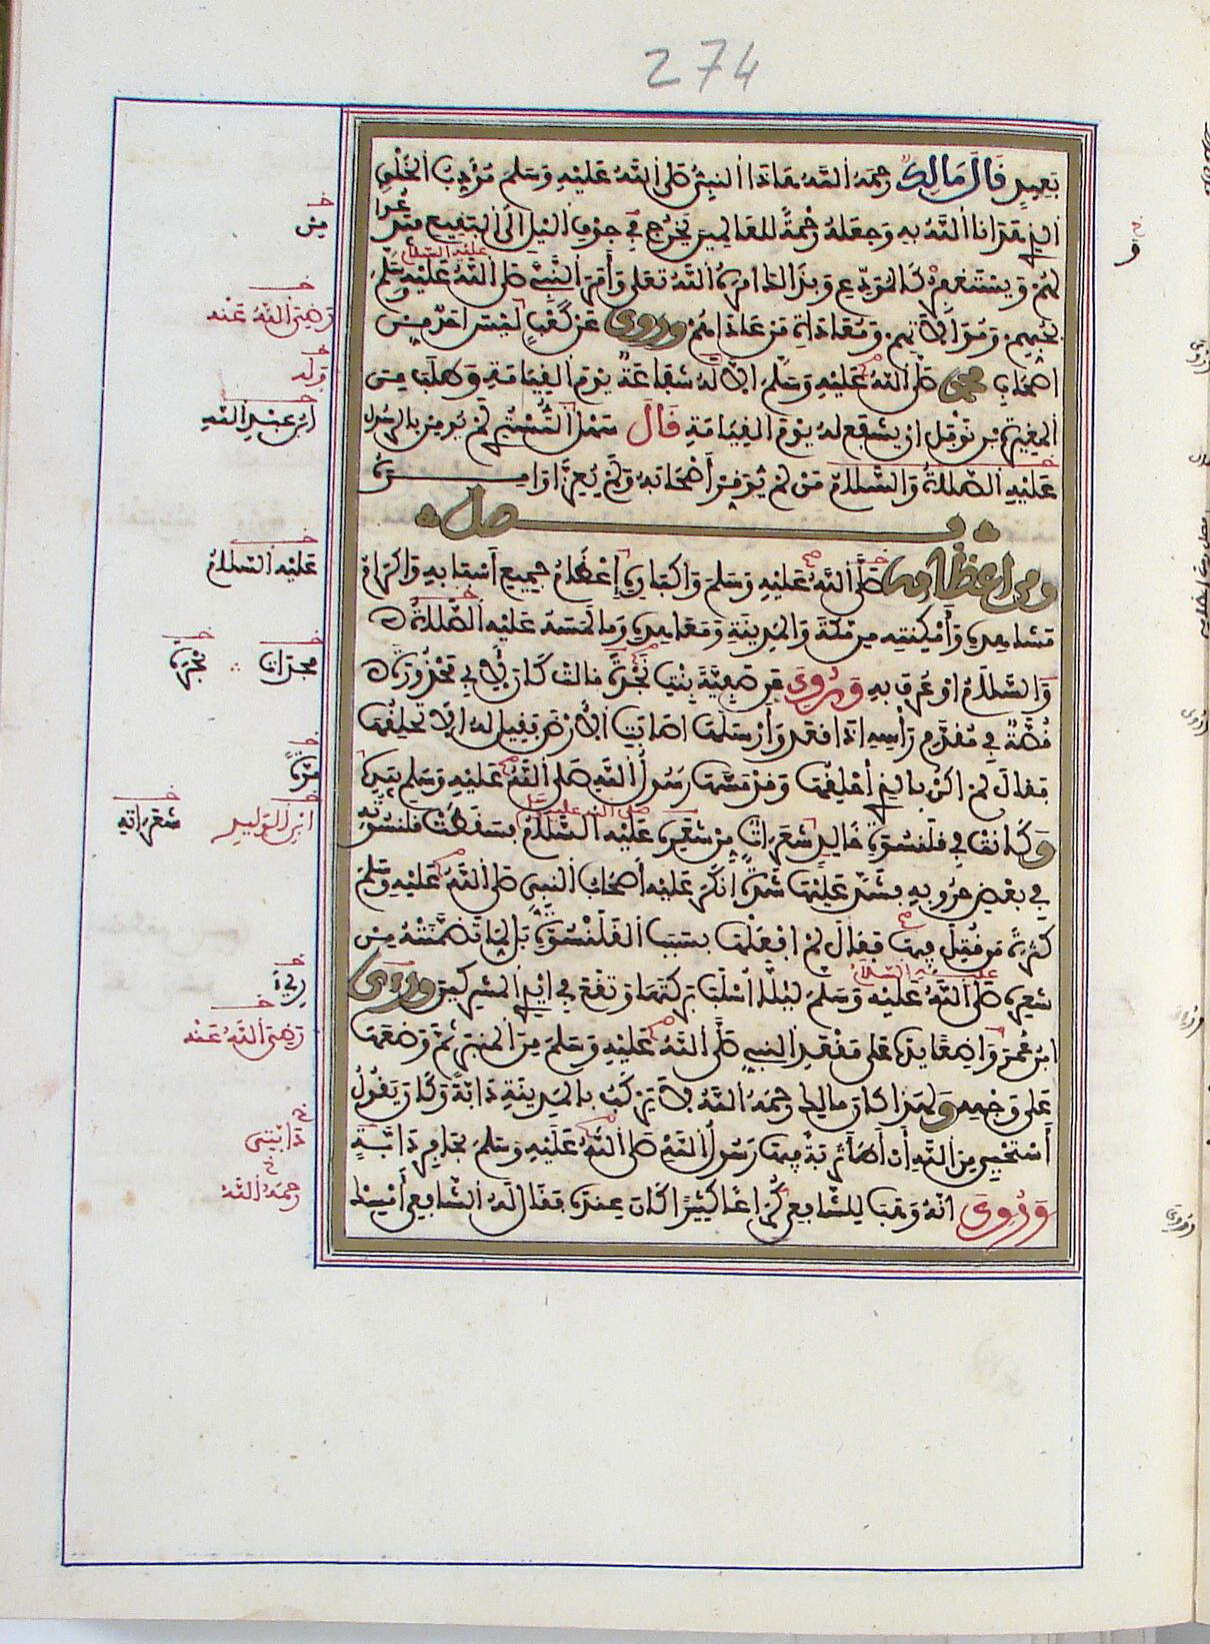 274
بعيد قال مالك رحمه الله هاذا النبي صلى الله عليه وسلم مؤدب الخلق
الذي هدانا الله به وجعله رحمة للعالمين يخرج في جوف الليل الى البقيع فيدعوا
لهم ويستغفر كالمودع وبذالك امره الله تعلى وأمر النبي صلى الله عليه وسلم
بحبهم وموالاتهم ومعاداة من عاداهم وروي عن كعب ليس احد من
اصحاب محمد صلى الله عليه وسلم الا له شفاعة يوم القيامة وطلب من
المغيرة بن نوفل ان يشفع له يوم القيامة قال سهل التستري لم يومن بالرسول
عليه الصلاة والسلام من لم يوقر أصحابه ولم يعز اوامره
فصل
ومن اعظامه صلى الله عليه وسلم واكباره إعظام جميع أسبابه واكرام
مشاهده وأمكنته من مكة والمدينة ومعاهده وما لمسه عليه الصلاة
والسلام او عرف به وروي عن صفية بنت نجدة قالت كان لابي محذورة
قصة في مقدم رأسه اذا قعد وأرسلها اصابت الأرض فقيل له الا تحلقها
فقال لم اكن بالذي أحلقها وقد مسها رسول الله صلى الله عليه وسلم بيده
وكانت في قلنسوة خالد شعرات من شعره عليه السلام فسقطت قلنسوته
في بعض حروبه فشد عليها شدة انكر عليه أصحاب النبي صلى الله عليه وسلم
كثرة من قتل فيها فقال لم افعلها بسبب القلنسوة بل لما تضمنته من
شعره صلى الله عليه وسلم ليلا أسلب بركتها وتقع في ايدي المشركين وروي
ابن عمر واضعا يده على مقعد النبي صلى الله عليه وسلم من المنبر ثم وضعها
على وجهه ولهذا كان مالك رحمه الله لا يركب بالمدينة دابة وكان يقول
أستحيي من الله أن أطأ تربة فيها رسول الله صلى الله عليه وسلم بحافر دابة
وروي انه وهب للشافعي كراعا كثيرا كان عنده فقال له الشافعي أمسك
من
رضي الله عنه
وله
ابن عبد الله
عليه السلام
مجزاة
مرة
ابن الوليد
شعراته
رضي الله عنه
دابتي
رحمه الله